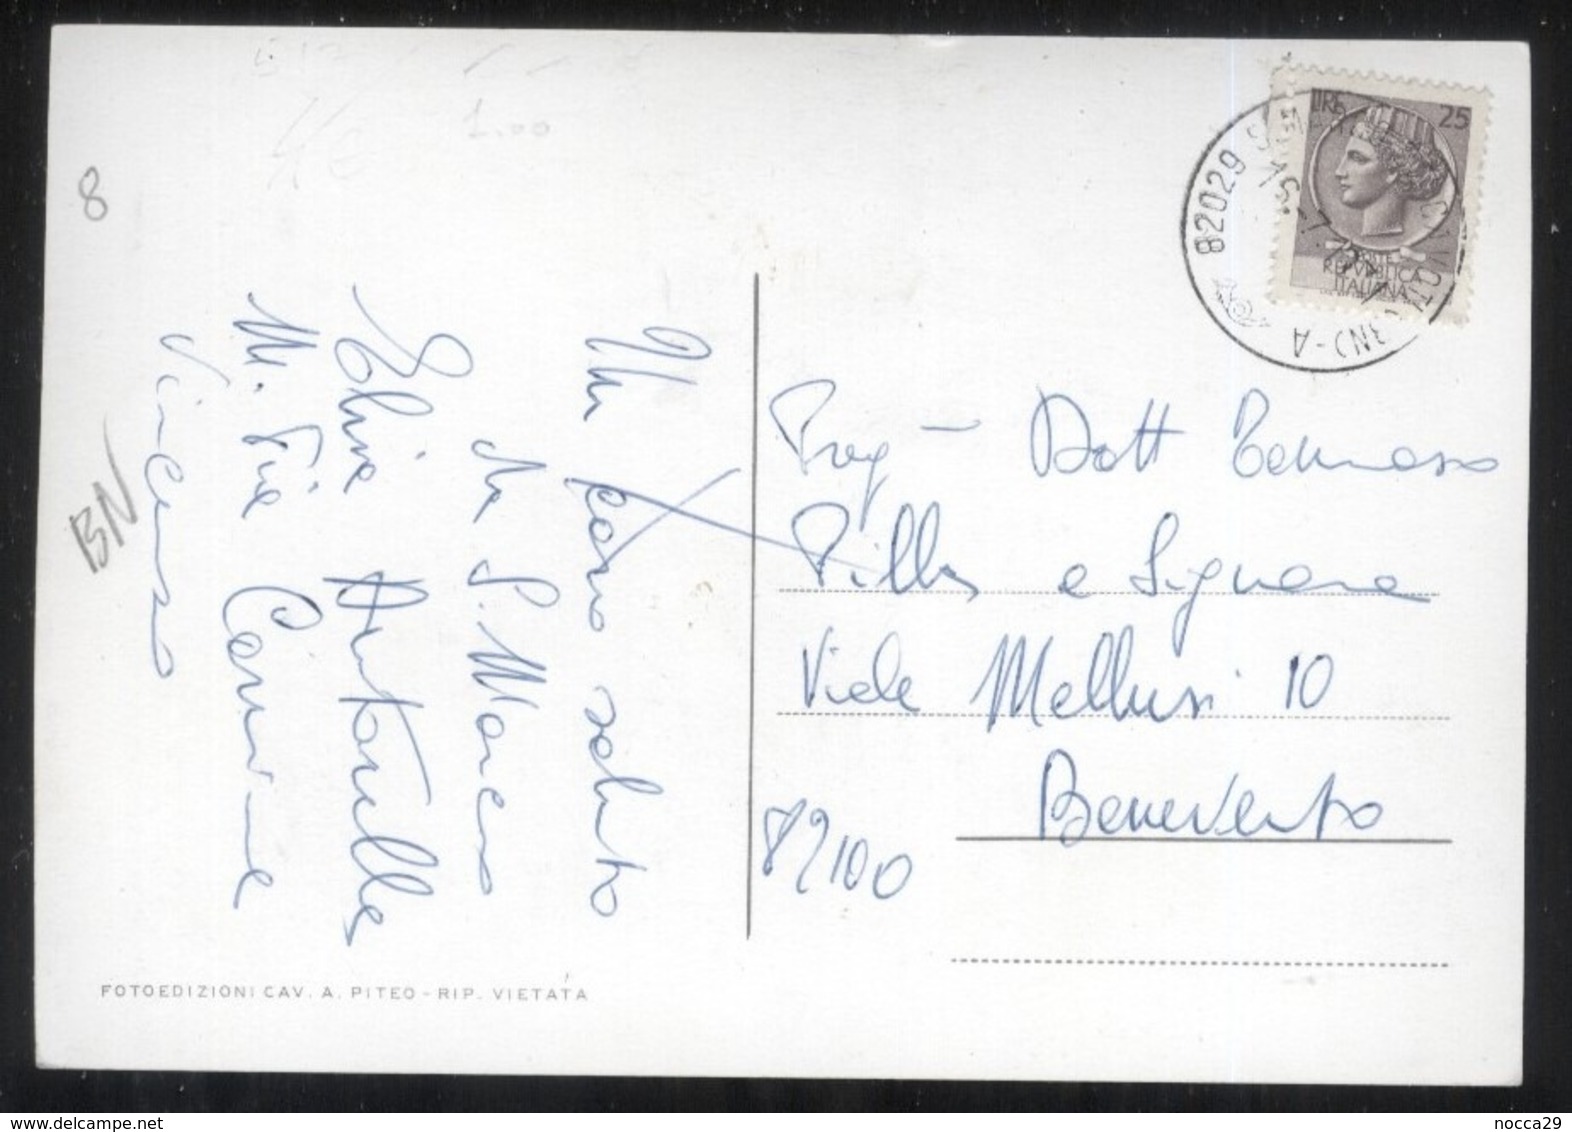 1.00
8
BN
Un caro saluto
da S. Marco
Antonella
M. Pia Carmine
Vincenzo
FOTOEDIZIONI CAV. A. PITEO - RIP. VIETATA
LIRE 25
REPVBBLICA
ITALIANA
82029 S. MARCO
(BN) - A
Dott Tommaso
Pillo e Signora
Viale Mellusi 10
Benevento
82100
www.delcampe.net
nocca29